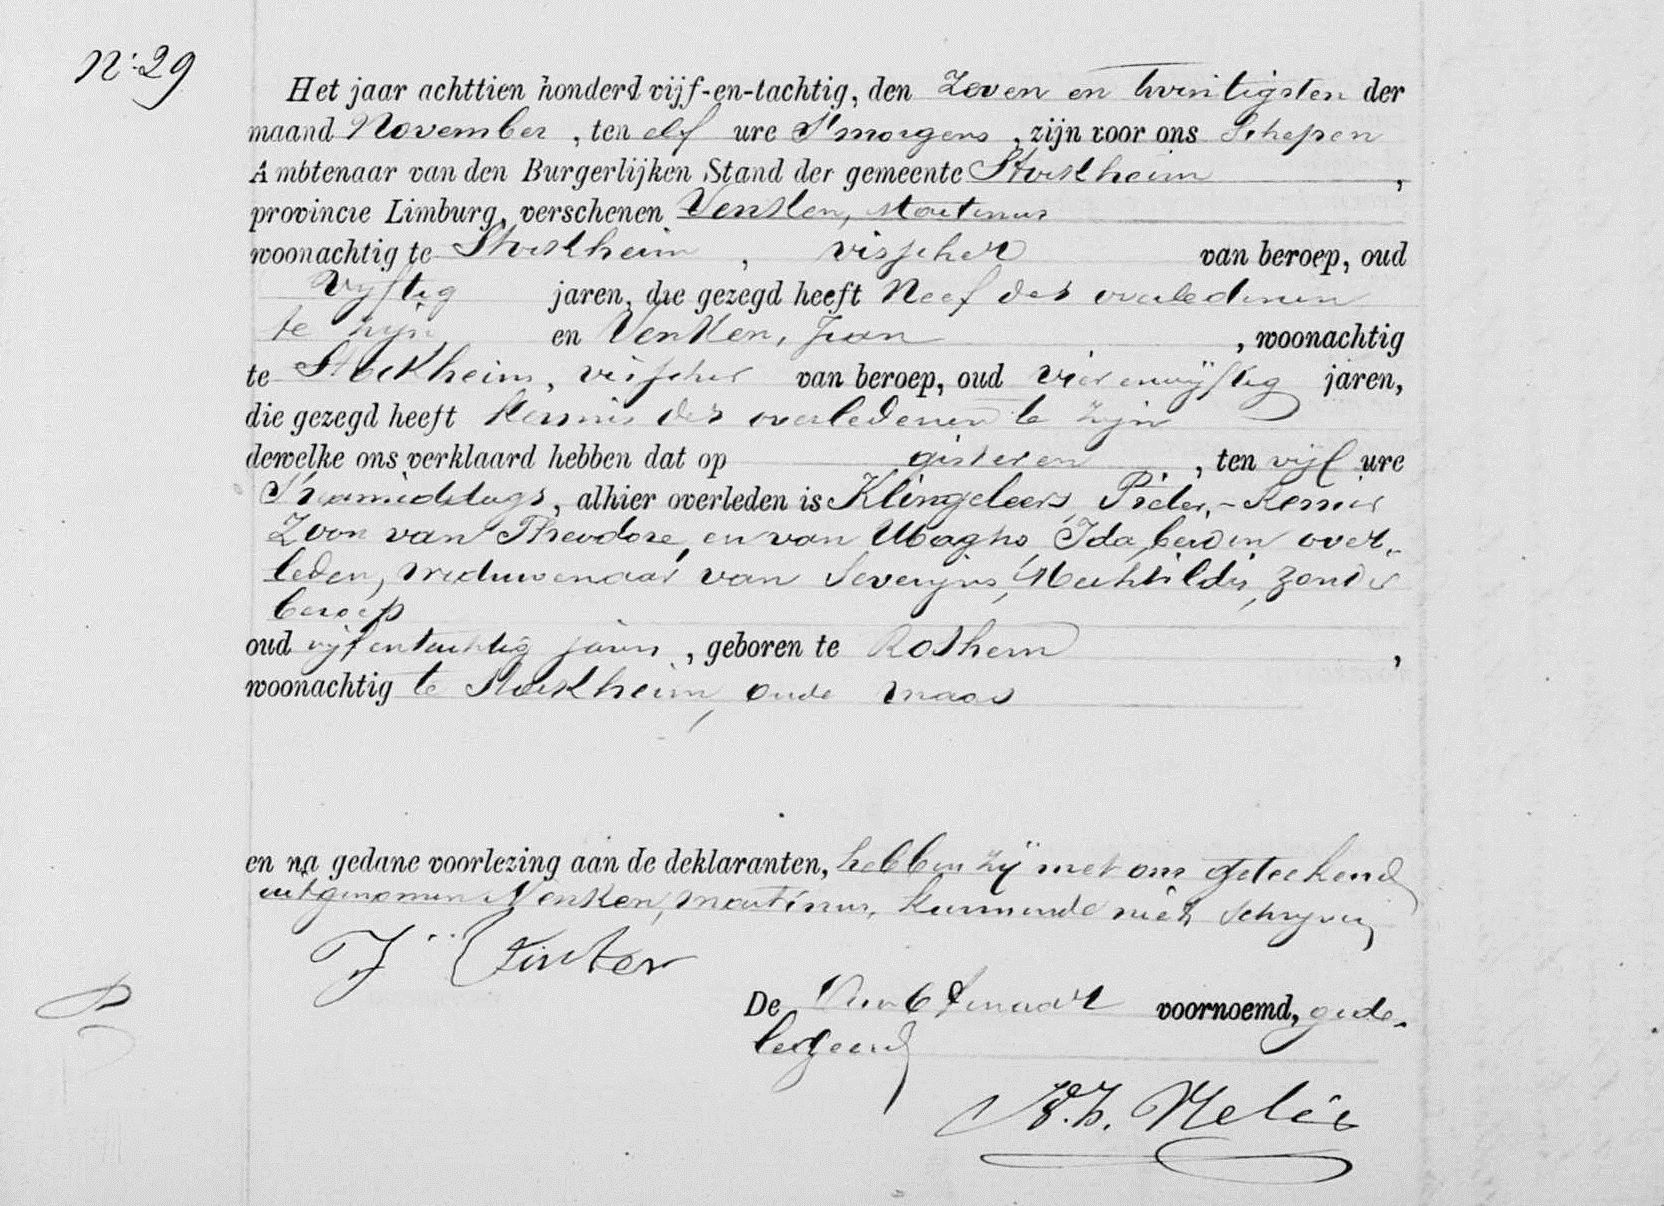 N: 29
Het jaar achttien honderd vijf-en-tachtig, den Zeven en twintigsten der
maand November, ten elf ure S'morgens, zijn voor ons Schepen
Ambtenaar van den Burgerlijken Stand der gemeente Stockheim,
provincie Limburg, verschenen Venken, Martinus
woonachtig te Stockheim, visscher van beroep, oud
Vijftig jaren, die gezegd heeft Neef des overledenen
te zijn en Venken, Jean, woonachtig
te Stockheim, visscher van beroep, oud vierenvijftig jaren,
die gezegd heeft Kennis des overledenen te zijn
dewelke ons verklaard hebben dat op gisteren, ten vijf ure
S'namiddags, alhier overleden is Klingeleers, Pieter,-
Zoon van Theodore, en van Ubaghs, Ida, beiden over-
leden, weduwenaar van Severijns, Mechtildis, zonder
beroep
oud vijfentachtig jaren, geboren te Rothem,
woonachtig te Stockheim, oude maas
en na gedane voorlezing aan de deklaranten, hebben zij met ons geteekend
uitgenomen Venken, Martinus, kunnende niet schrijven
De Ambtenaar voornoemd, gede-
legeerd